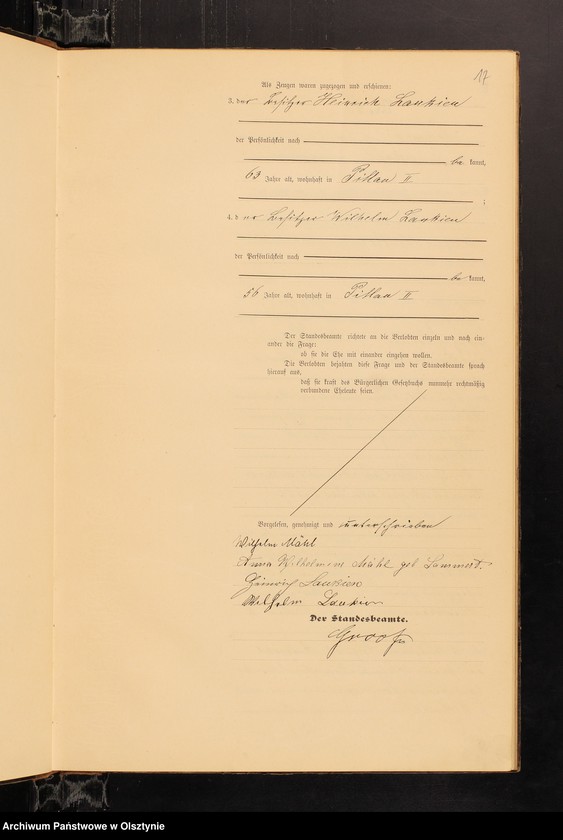 17
Als Zeugen waren zugezogen und erschienen:
3. der Besitzer Heinrich Lankien
der Persönlichkeit nach
be kannt,
63 Jahre alt, wohnhaft in Pillau II
;
4. der Besitzer Wilhelm Lankien
der Persönlichkeit nach
be kannt,
56 Jahre alt, wohnhaft in Pillau II
Der Standesbeamte richtete an die Verlobten einzeln und nach ein-
ander die Frage:
ob sie die Ehe mit einander eingehen wollen.
Die Verlobten bejahten diese Frage und der Standesbeamte sprach
hierauf aus,
daß sie kraft des Bürgerlichen Gesetzbuchs nunmehr rechtmäßig
verbundene Eheleute seien.
Vorgelesen, genehmigt und unterschrieben
Wilhelm Mähl
Anna Wilhelmine Mähl geb Lammert.
Heinrich Lankien
Wilhelm Lankien
Der Standesbeamte.
Archiwum Państwowe w Olsztynie